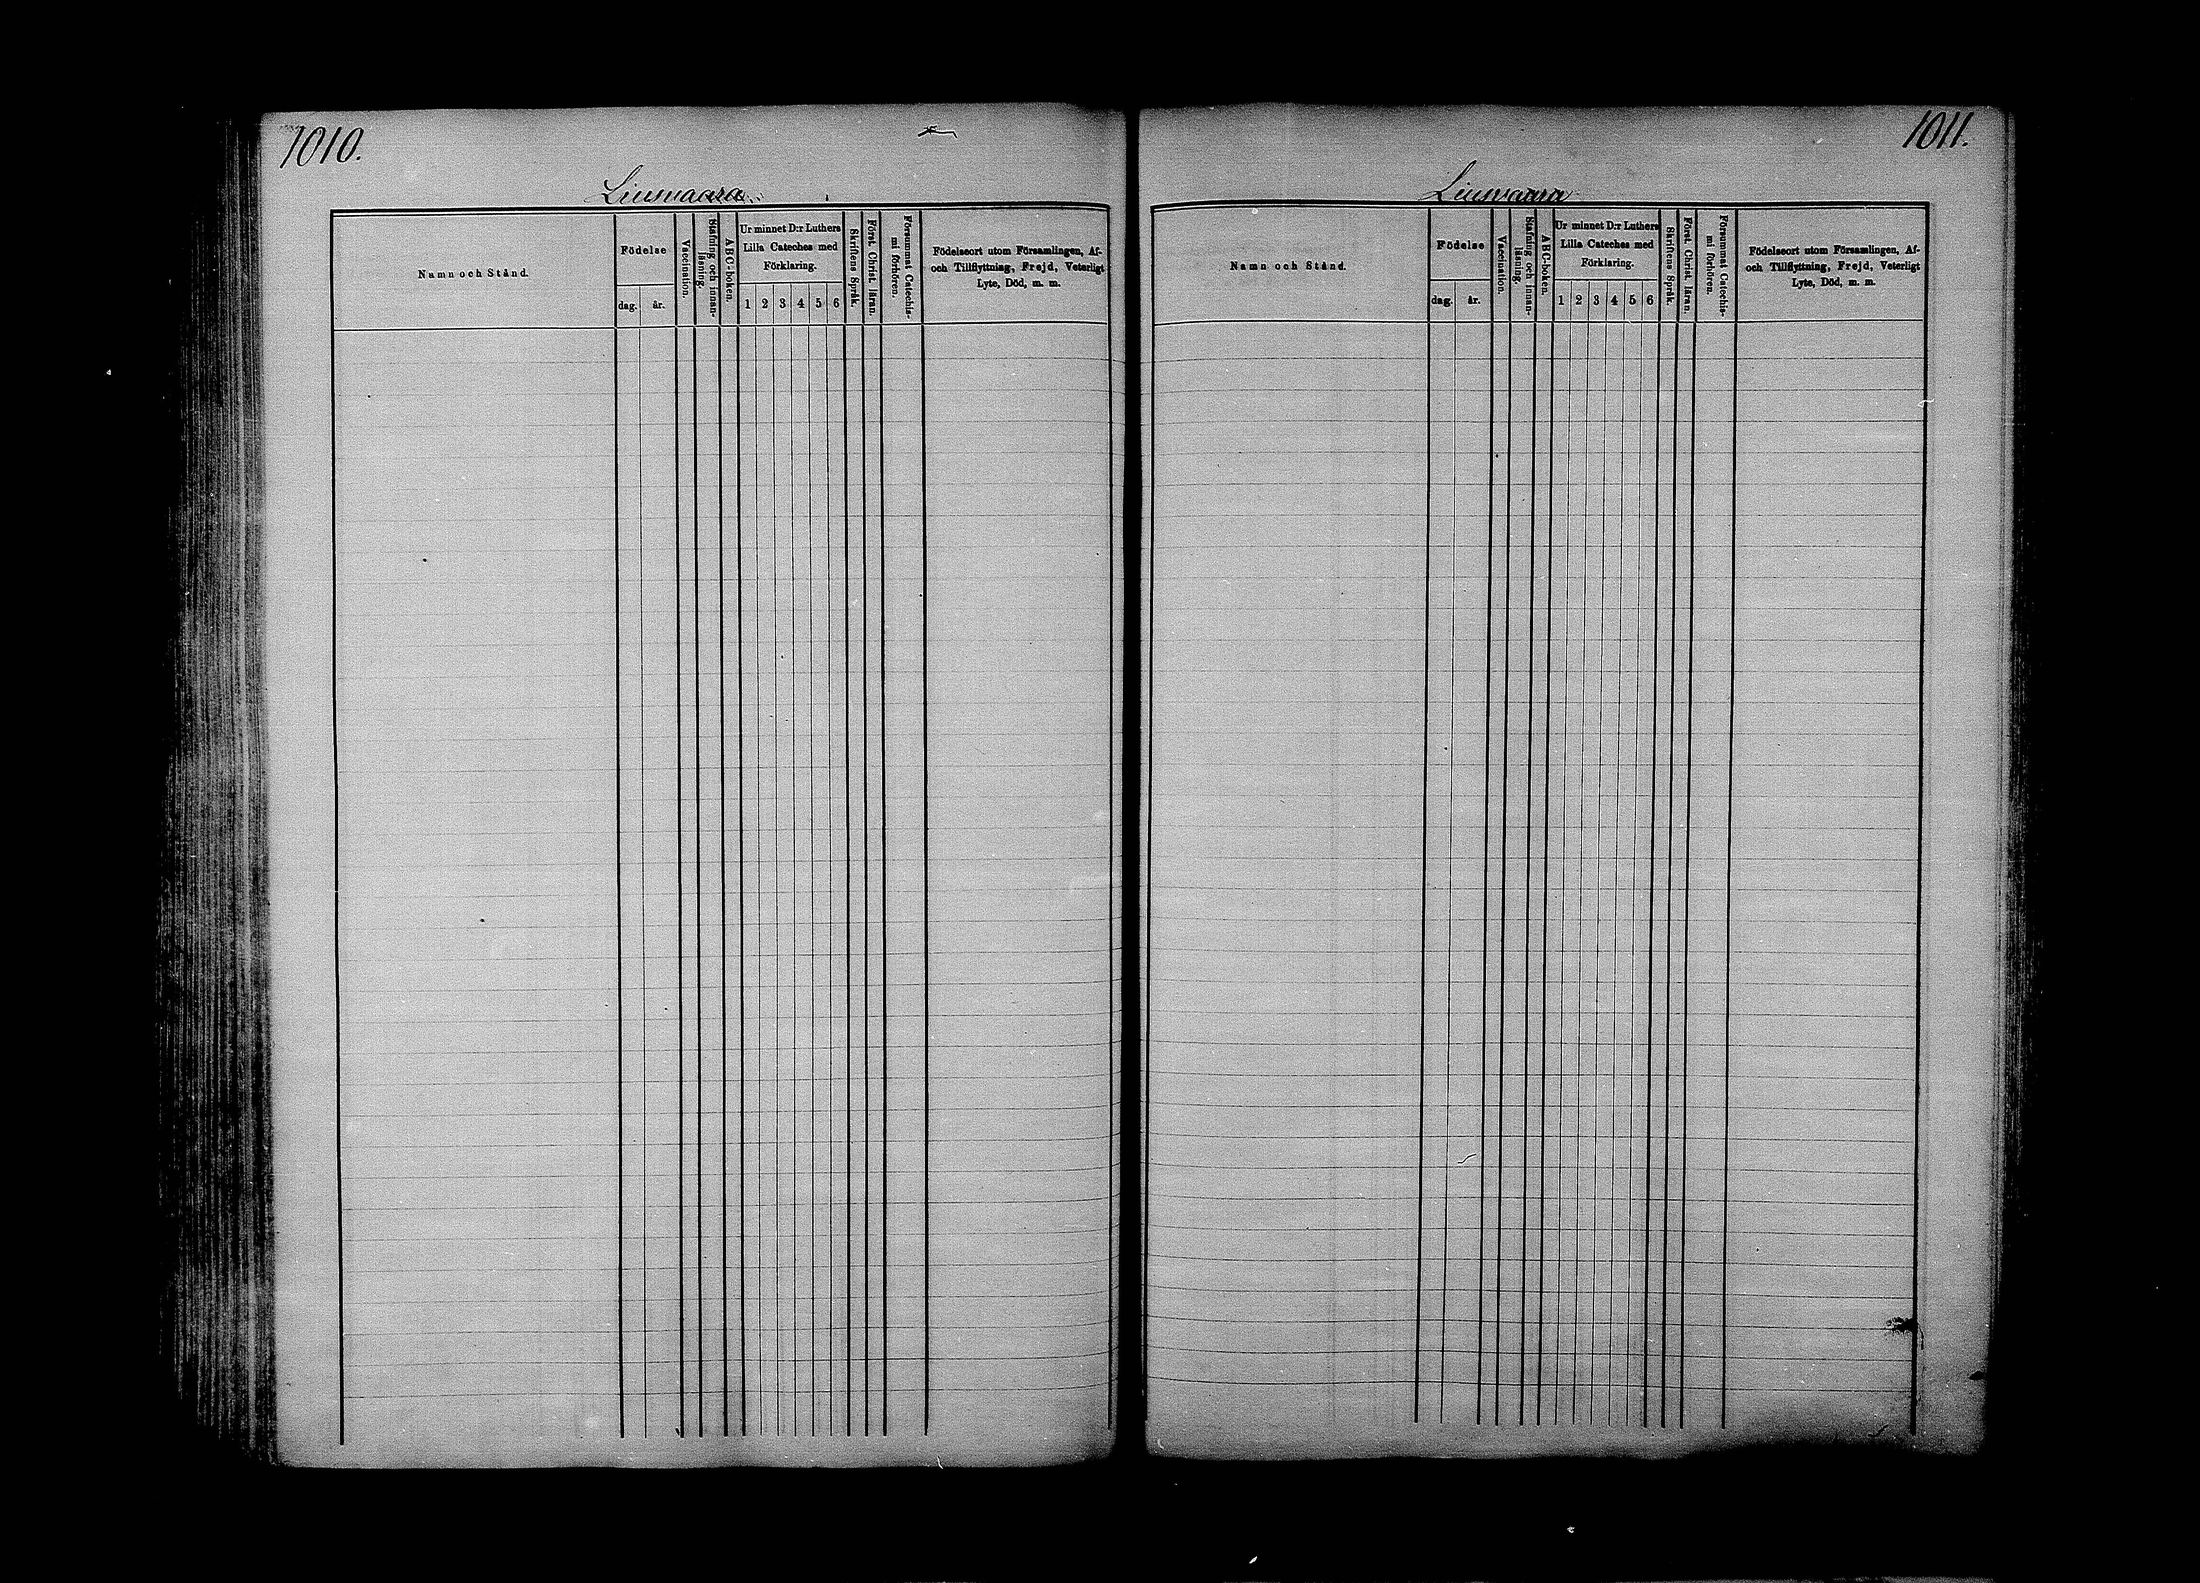 1010.
Liusvaara
Namn och Stånd.
Födelse
dag. år.
Vaccination.
Stafning och innan-
läsning.
ABC-boken.
Ur minnet D:r Luthers
Lilla Cateches med
Förklaring.
1 2 3 4 5 6
Skriftens Språk.
Först. Christ. läran.
Försummat Catechis-
mi förhören.
Födelseort utom Församlingen, Af-
och Tillflyttning, Frejd, Veterligt
Lyte, Död, m. m.
1011.
Liusvaara
Namn och Stånd.
Födelse
dag. år.
Vaccination.
Stafning och innan-
läsning.
ABC-boken.
Ur minnet D:r Luthers
Lilla Cateches med
Förklaring.
1 2 3 4 5 6
Skriftens Språk.
Först. Christ. läran.
Försummat Catechis-
mi förhören.
Födelseort utom Församlingen, Af-
och Tillflyttning, Frejd, Veterligt
Lyte, Död, m. m.